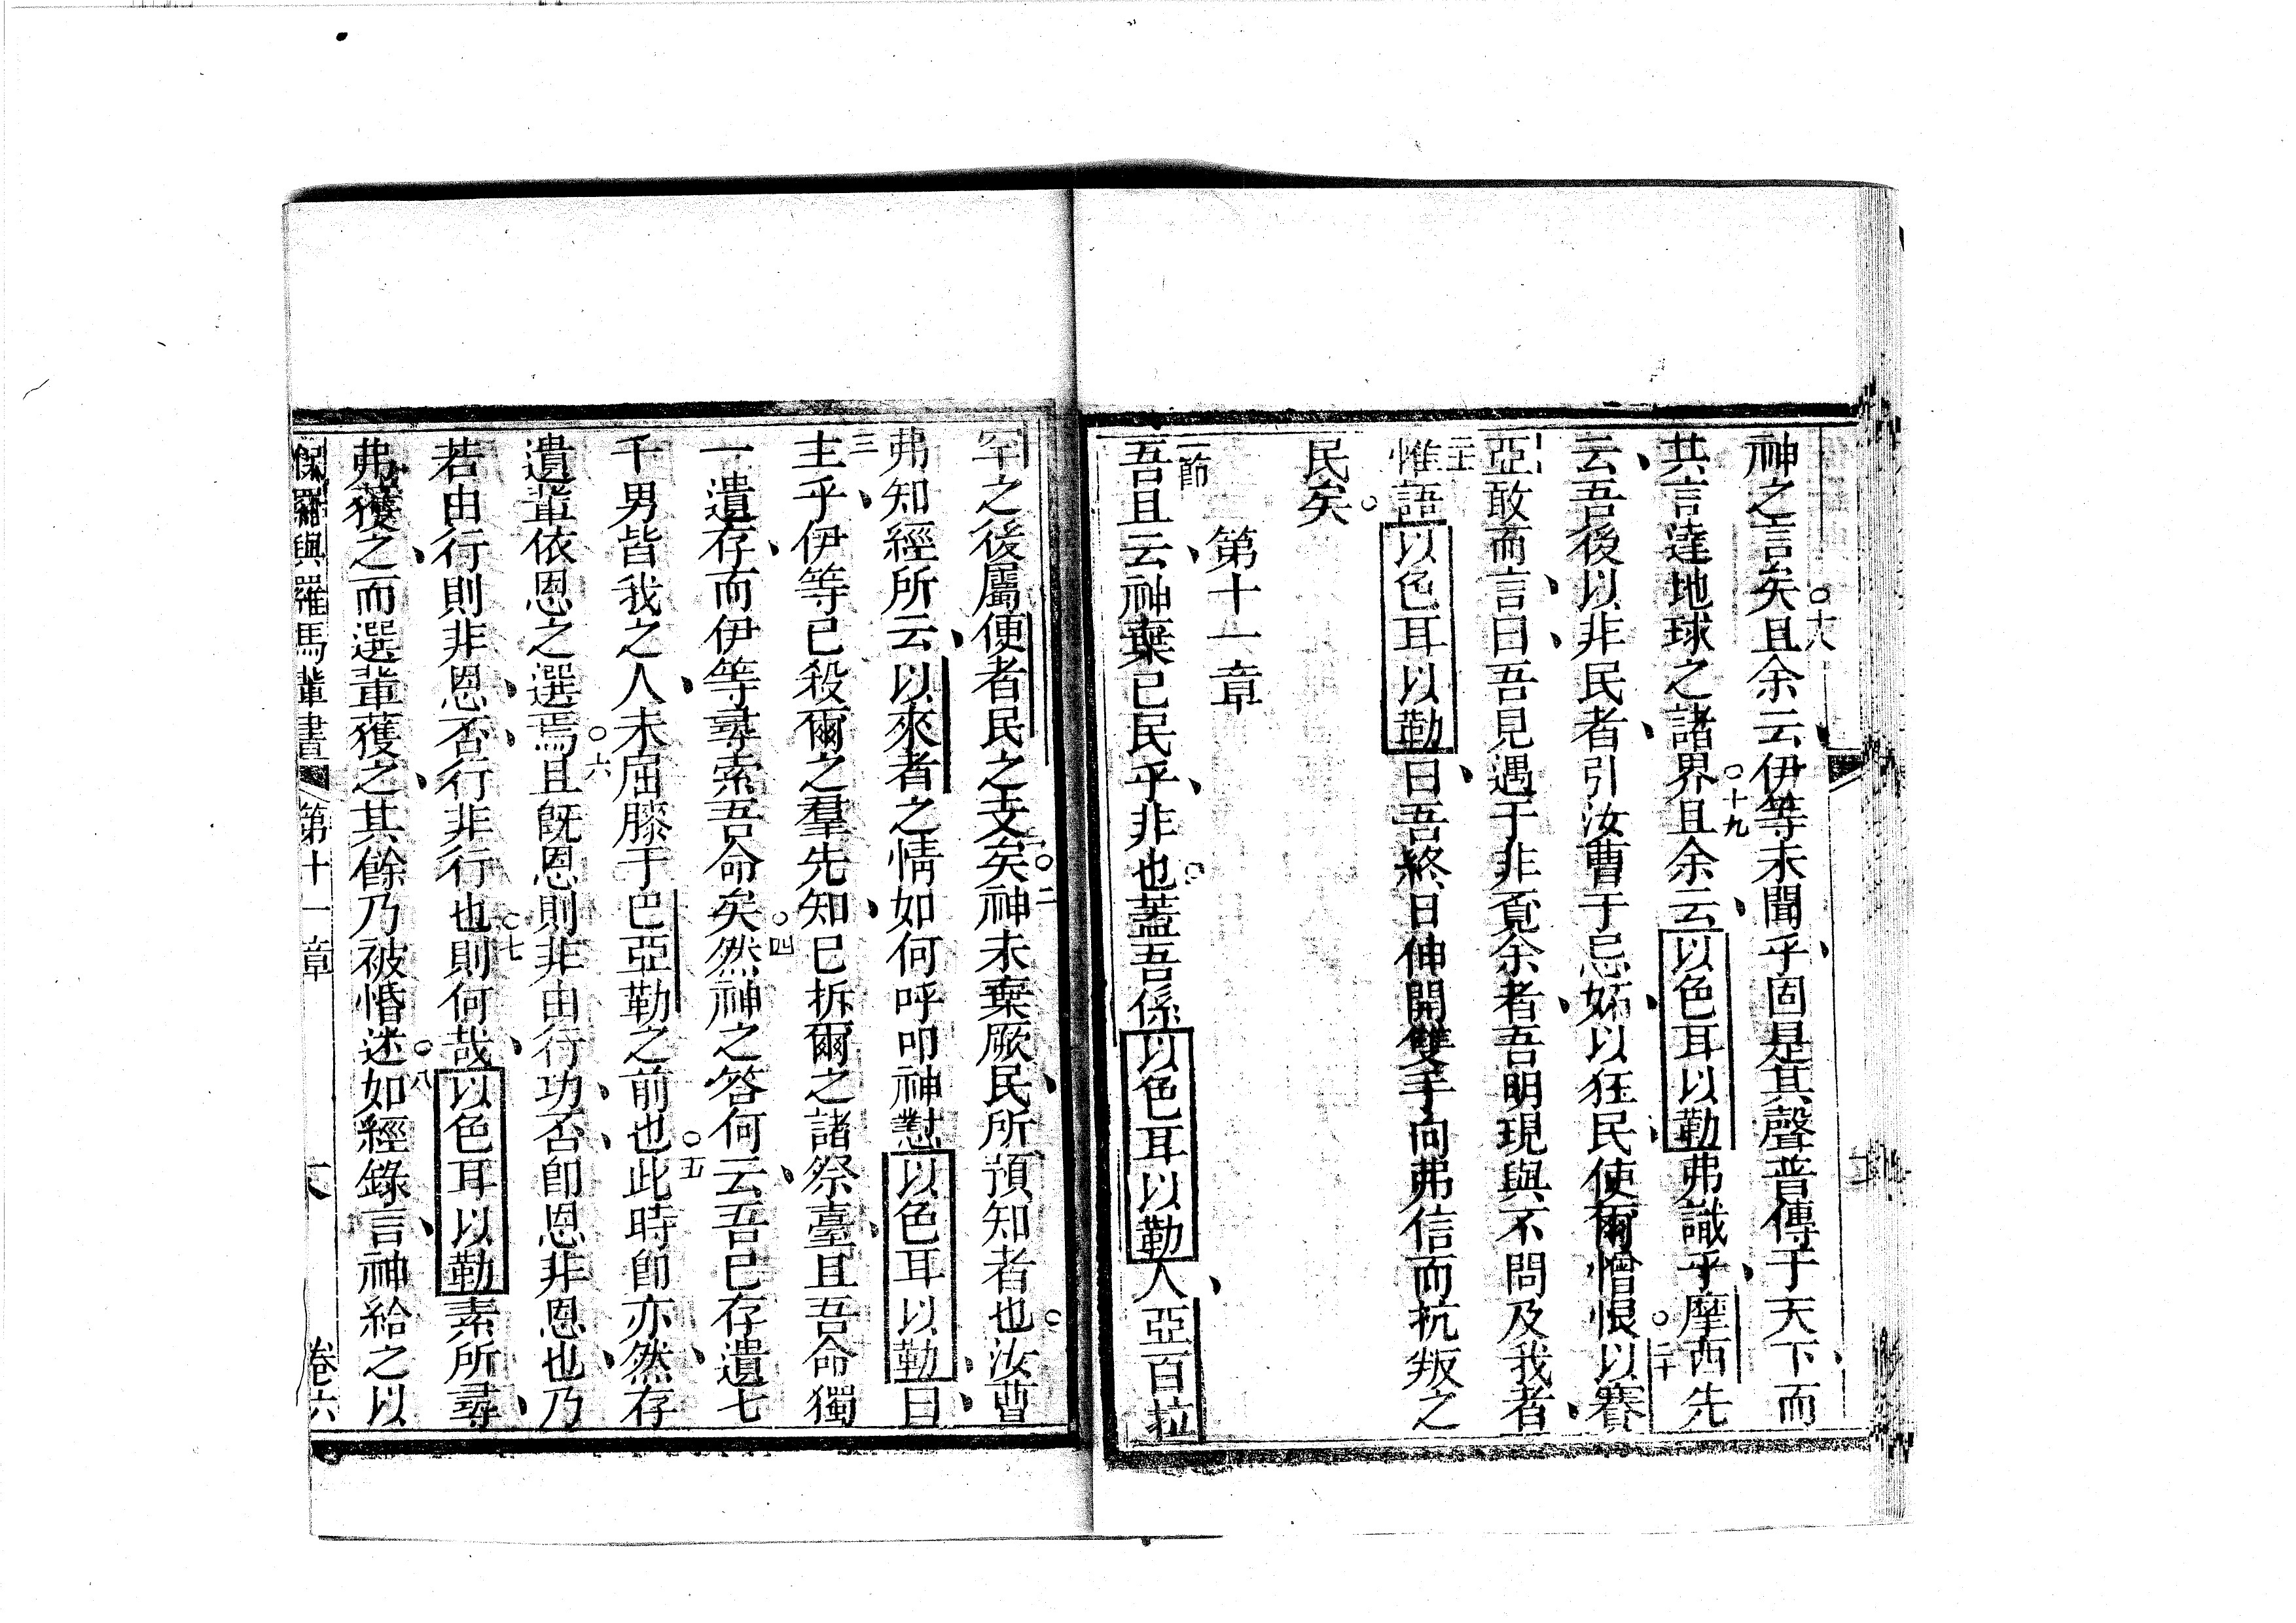 神之言矣且余云伊等未聞乎固是其聲普傳于天下而
十八
共言達地球之諸界且余云以色耳以勒弗識乎摩西先
十九
云吾後以非民者引汝曹于忌妬以狂民使爾憎恨以賽
二十
亞敢而言曰吾見遇于非覔余者吾明現與不問及我者
惟語以色耳以勒曰吾終日伸開雙手向弗信而抗叛之
民矣
第十一章
一節
吾且云神棄已民乎非也蓋吾係以色耳以勒人亞百拉
罕之後屬便者民之支矣神未棄厥民所預知者也汝曹
二
弗知經所云以來者之情如何呼叩神懟以色耳以勒曰
三
主乎伊等已殺爾之羣先知已拆爾之諸祭臺且吾命獨
一遺存而伊等尋索吾命矣然神之答何云吾已存遺七
四
千男皆我之人未屈膝于巴亞勒之前也此時即亦然存
五
遺軰依恩之選焉且既恩則非由行功否即恩非恩也乃
六
若由行則非恩否行非行也則何哉以色耳以勒素所尋
七
弗獲之而選軰獲之其餘乃被惛迷如經錄言神給之以
八
保羅與羅馬輩書 第十一章 卷六